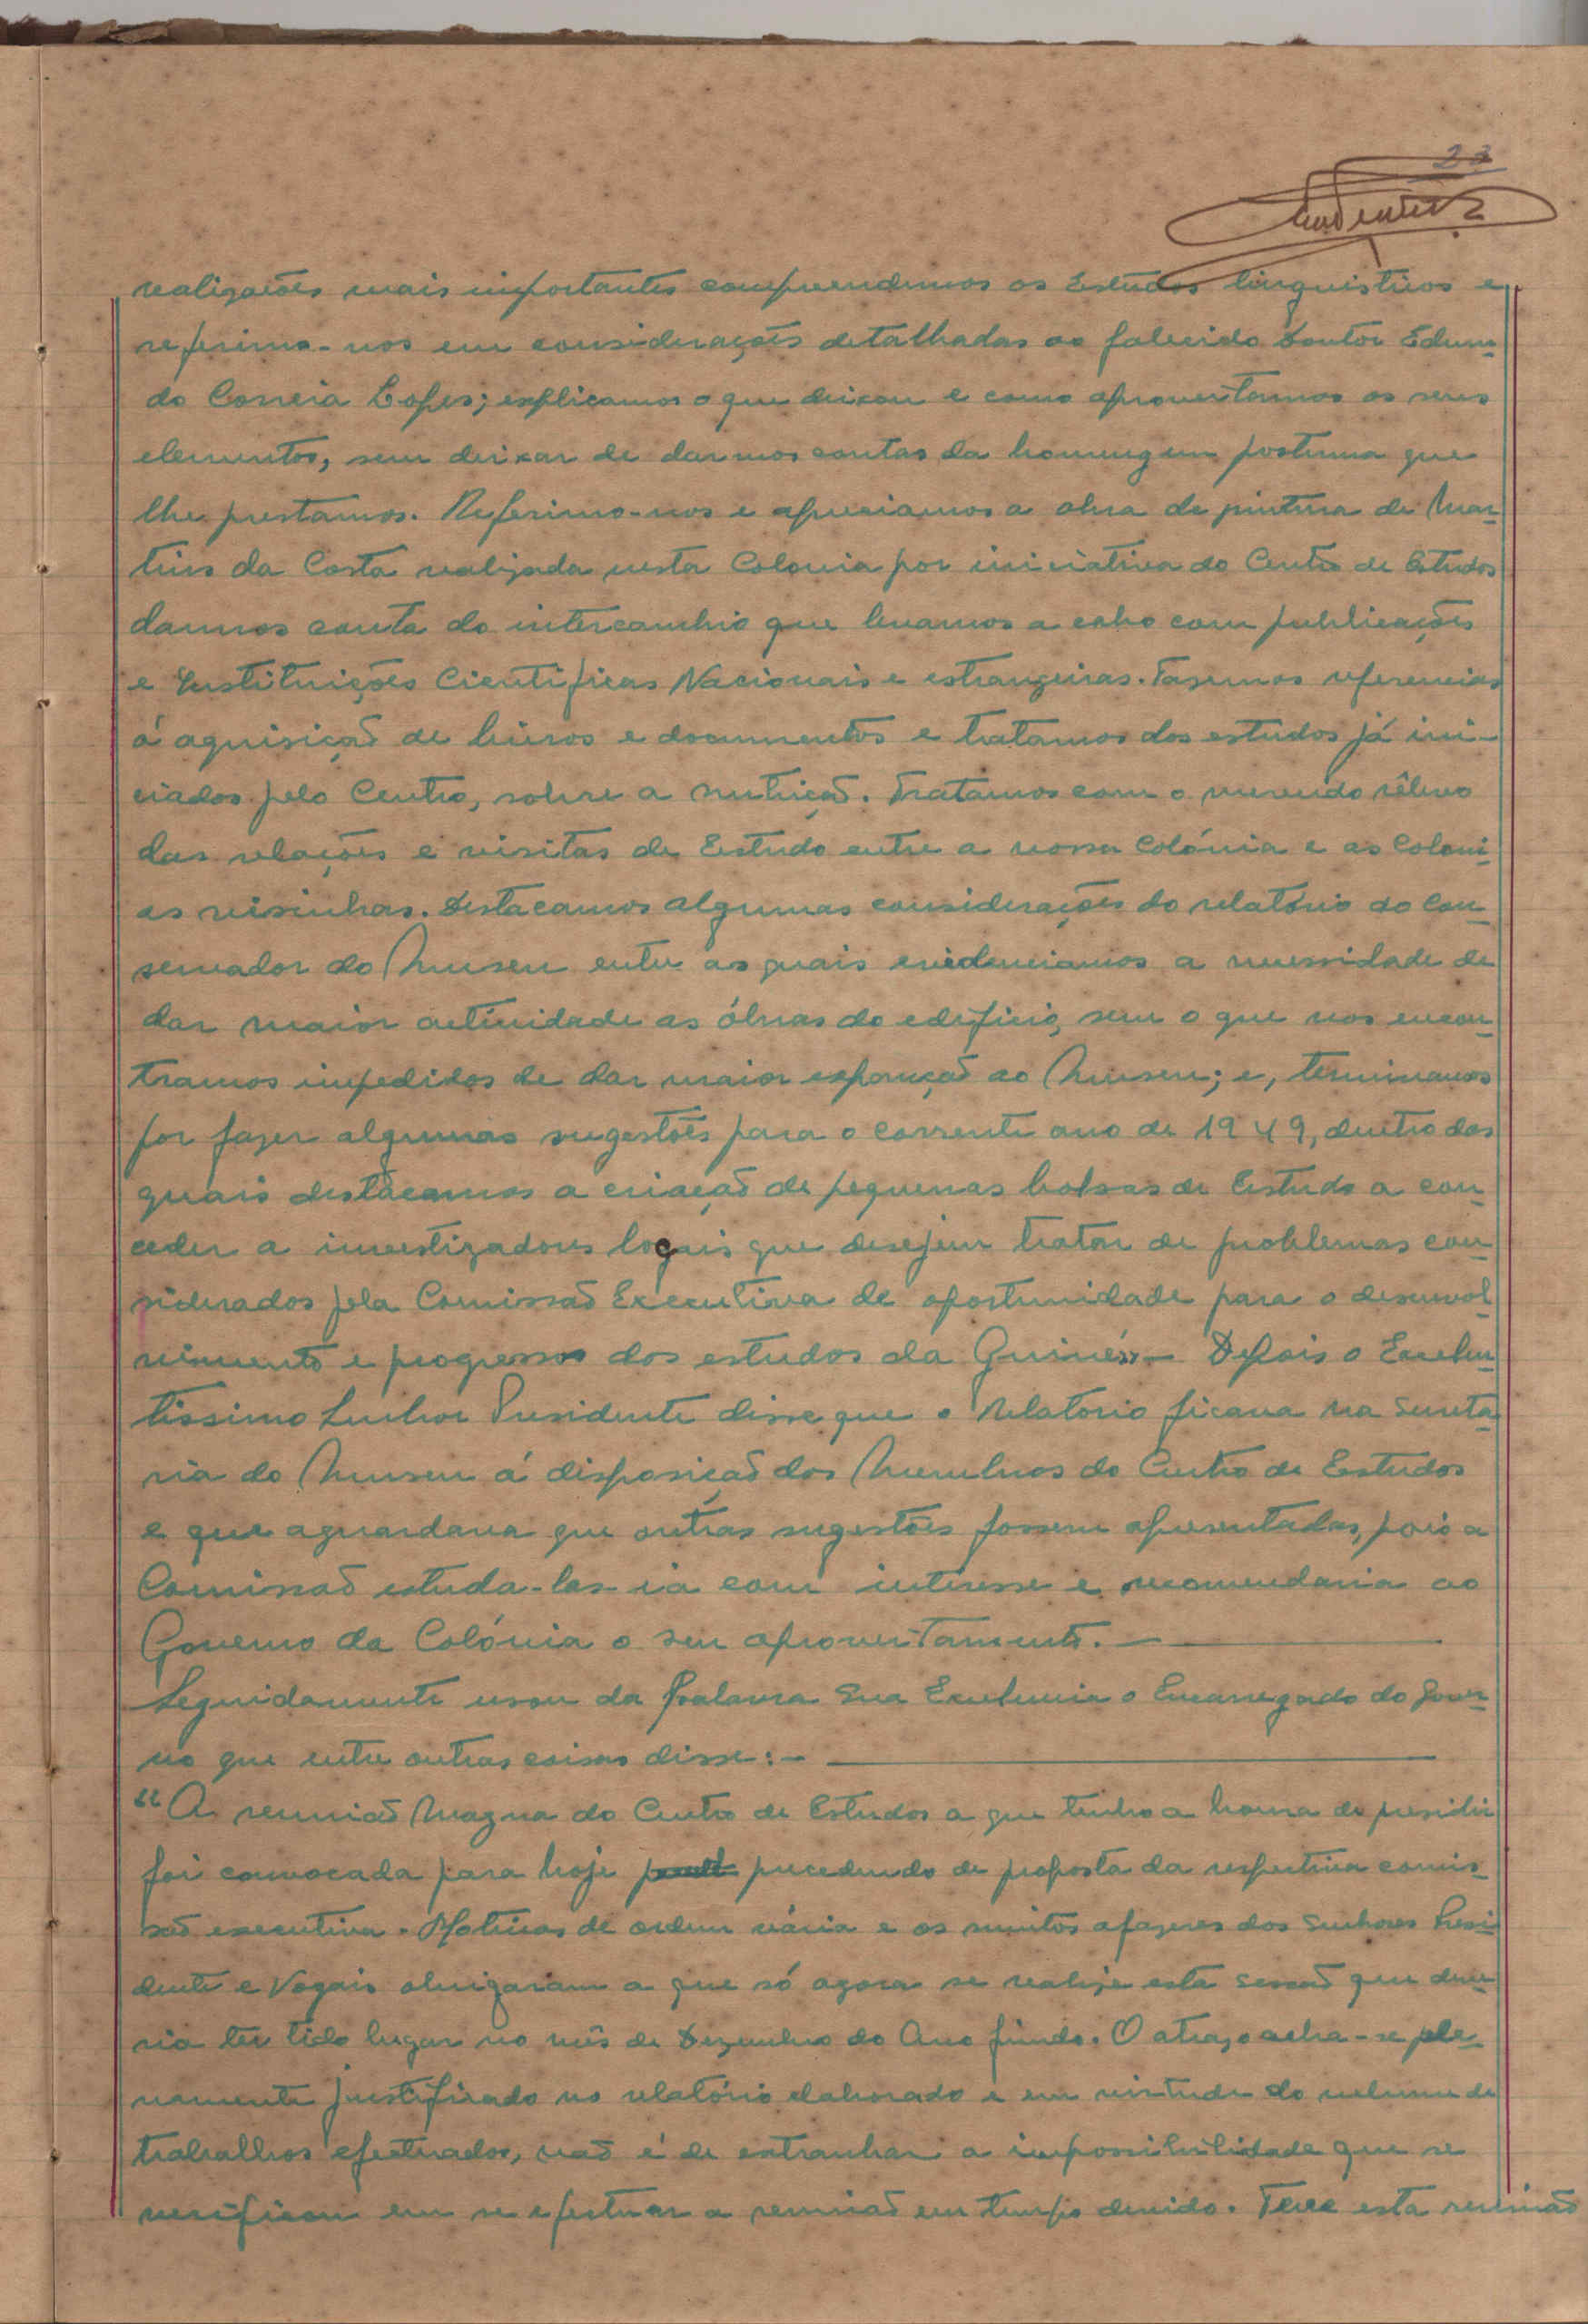 23
realizações mais importantes compreendemos os Estudos linguisticos e
referimo-nos em considerações detalhadas ao falecido Doutor Edmun-
do Correia Lopes; explicamos o que deixou e como aproveitamos os seus
elementos, sem deixar de darmos contas da homenagem postuma que
lhe prestamos. Referimo-nos e apreciamos a obra de pintura de Mar-
tins da Costa realizada nesta Colonia por iniciativa do Centro de Estudos
damos conta do intercambio que levamos a cabo com publicações
e Instituições Cientificas Nacionais e estrangeiras. Fazemos referencias
á aquisição de livros e documentos e tratamos dos estudos já ini-
ciados pelo Centro, sobre a nutrição. Tratamos com o merecido rêlevo
das relações e visitas de Estudo entre a nossa Colónia e as Coloni-
as visinhas. Destacamos algumas considerações do relatório do Con-
servador do Museu entre as quais evidenciamos a necessidade de
dar maior actividade as óbras do edificio, sem o que nos encon-
tramos impedidos de dar maior expansão ao Museu; e, terminamos
por fazer algumas sugestões para o corrente ano de 1949, dentro das
quais destacamos a criação de pequenas bolsas de Estudo a con-
ceder a investigadores locais que desejem tratar de problemas con-
siderados pela Comissão Executiva de oportunidade para o desenvol-
vimento e progresso dos estudos da Guiné». - Depois o Excelen-
tissimo Senhor Presidente disse que o Relatorio ficava na Secreta-
ria do Museu á disposição dos Membros do Centro de Estudos
e que aguardava que outras sugestões fossem apresentadas, pois a
Comissão estuda-las-ia com interesse e recomendaria ao
Governo da Colónia o seu aproveitamento. -
Seguidamente usou da Palavra Sua Excelencia o Encarregado do Gover-
no que entre outras coisas disse: -
"A reunião Magna do Centro de Estudos a que tenho a honra de presidir
foi convocada para hoje precedendo de proposta da respectiva comis-
são executiva. Motivos de ordem vária e os muitos afazeres dos Senhores Presi-
dente e Vogais obrigaram a que só agora se realize esta sessão que deve-
ria ter tido lugar no mês de Dezembro do Ano findo. O atrazo acha-se ple-
namente justificado no relatório elaborado e em virtude do volume de
trabalhos efectuados, não é de extranhar a impossibilidade que se
verificou em se efectuar a reunião em tempo devido. Teve esta reunião